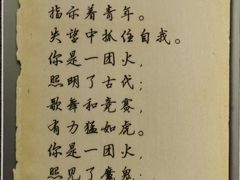 指示着青年。
失望中抓住自我。
你是一团火，
照明了古代；
歌舞和竞赛，
有力猛如虎。
你是一团火，
照见了魔鬼；